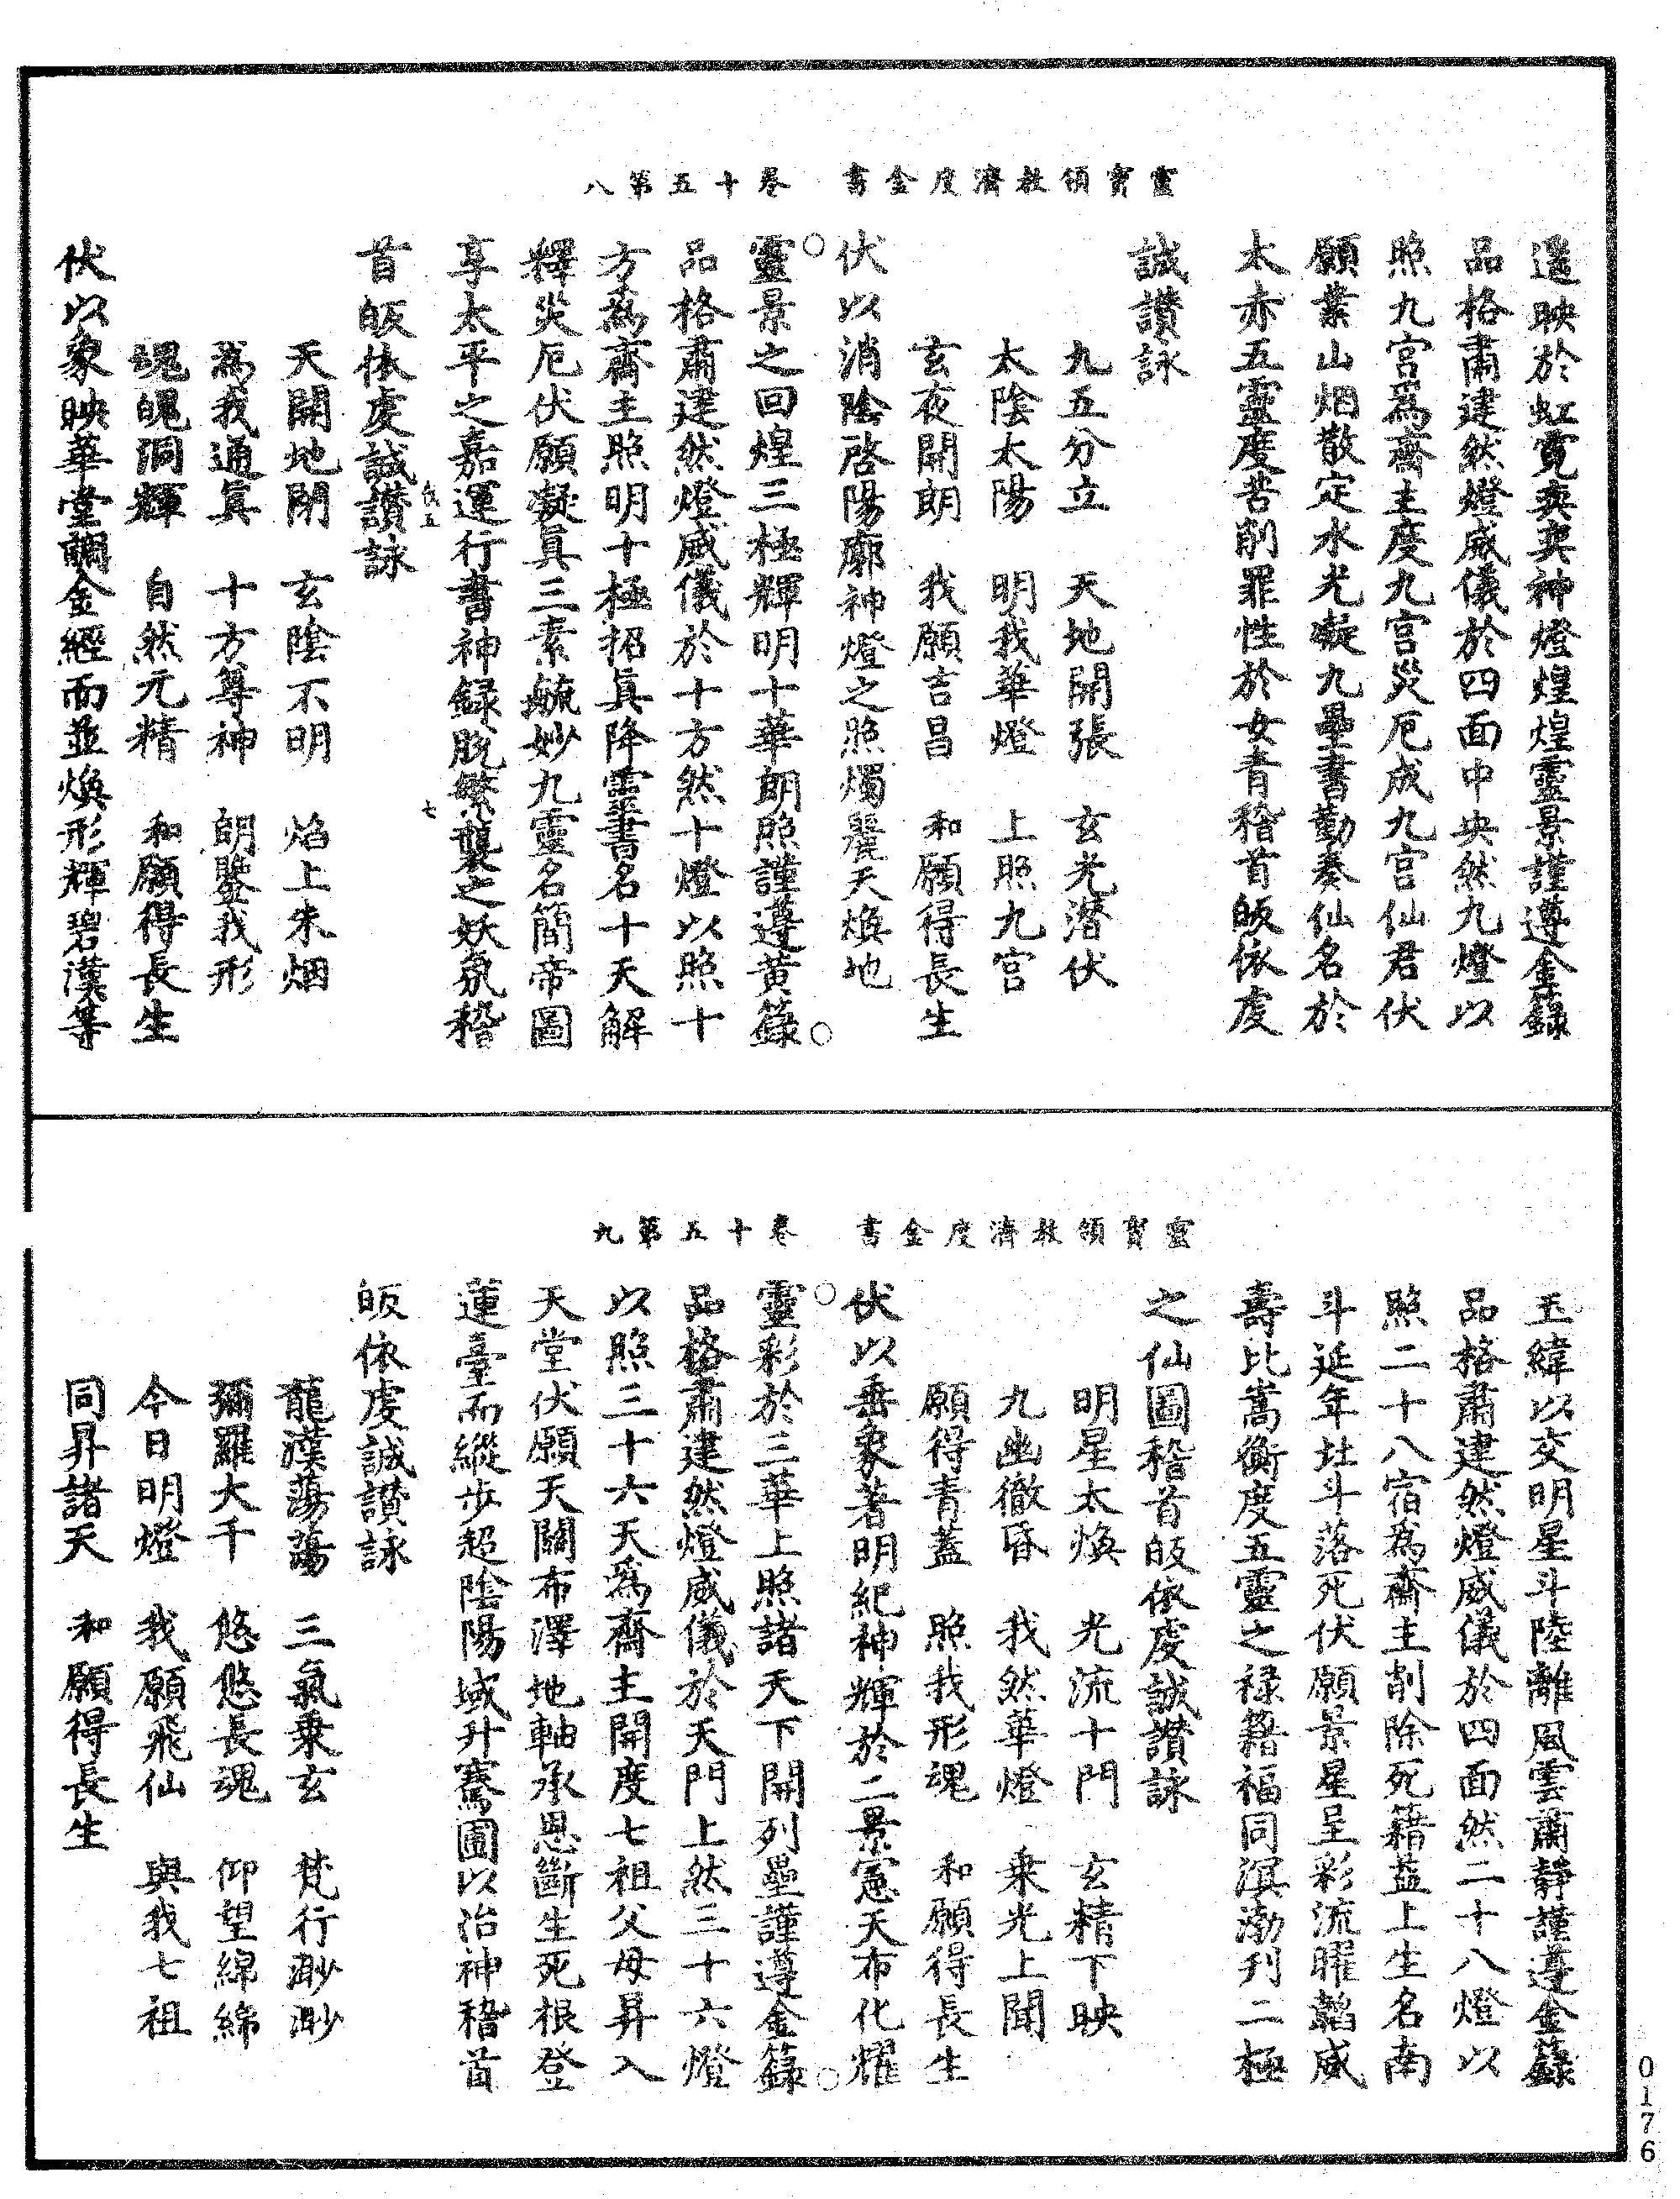 靈寶領教濟度金書　卷十五第八
遥映於虹霓奕奕神燈煌煌靈景謹遵金籙
品格肅建然燈威儀於四面中央然九燈以
照九宮爲齋主度九宮災厄成九宮仙君伏
願業山烟散定水光凝九壘書勤奏仙名於
太赤五靈度苦削罪性於女青稽首皈依虔
誠讚詠
九五分立　天地開張　玄光潛伏
太陰太陽　明我華燈　上照九宮
玄夜開朗　我願吉昌　和願得長生
伏以消陰啓陽廓神燈之照燭麗天煥地
靈景之回煌三極輝明十華朗照謹遵黃籙
品格肅建然燈威儀於十方然十燈以照十
方爲齋主照明十極招真降靈書名十天解
釋災厄伏願凝真三素毓妙九靈名簡帝圖
享太平之嘉運行書神録脫繁襲之妖氛稽
七
首皈依虔誠讚詠
天開地閉　玄陰不明　焰上朱烟
爲我通真　十方尊神　朗鑒我形
魂魄洞輝　自然元精　和願得長生
伏以象映華堂調金經而並煥形輝碧漢等
靈寶領教濟度金書　卷十五第九
玉緯以交明星斗陸離風雲肅靜謹遵金籙
品格肅建然燈威儀於四面然二十八燈以
照二十八宿爲齋主削除死籍益上生名南
斗延年北斗落死伏願景星呈彩流曜韜威
壽比嵩衡度五靈之禄籍福同溟渤列二極
之仙圖稽首皈依虔誠讚詠
明星太煥　光流十門　玄精下映
九幽徹昏　我然華燈　乘光上聞
願得青蓋　照我形魂　和願得長生
伏以垂象著明紀神輝於二景憲天布化耀
靈彩於三華上照諸天下開列壘謹遵金籙
品格肅建然燈威儀於天門上然三十六燈
以照三十六天爲齋主開度七祖父母昇入
天堂伏願天關布澤地軸承恩斷生死根登
蓮臺而縱步超陰陽域升騫圃以冶神稽首
皈依虔誠讚詠
龍漢蕩蕩　三氣乘玄　梵行渺渺
彌羅大千　悠悠長魂　仰望綿綿
今日明燈　我願飛仙　與我七祖
同昇諸天　和願得長生
0176